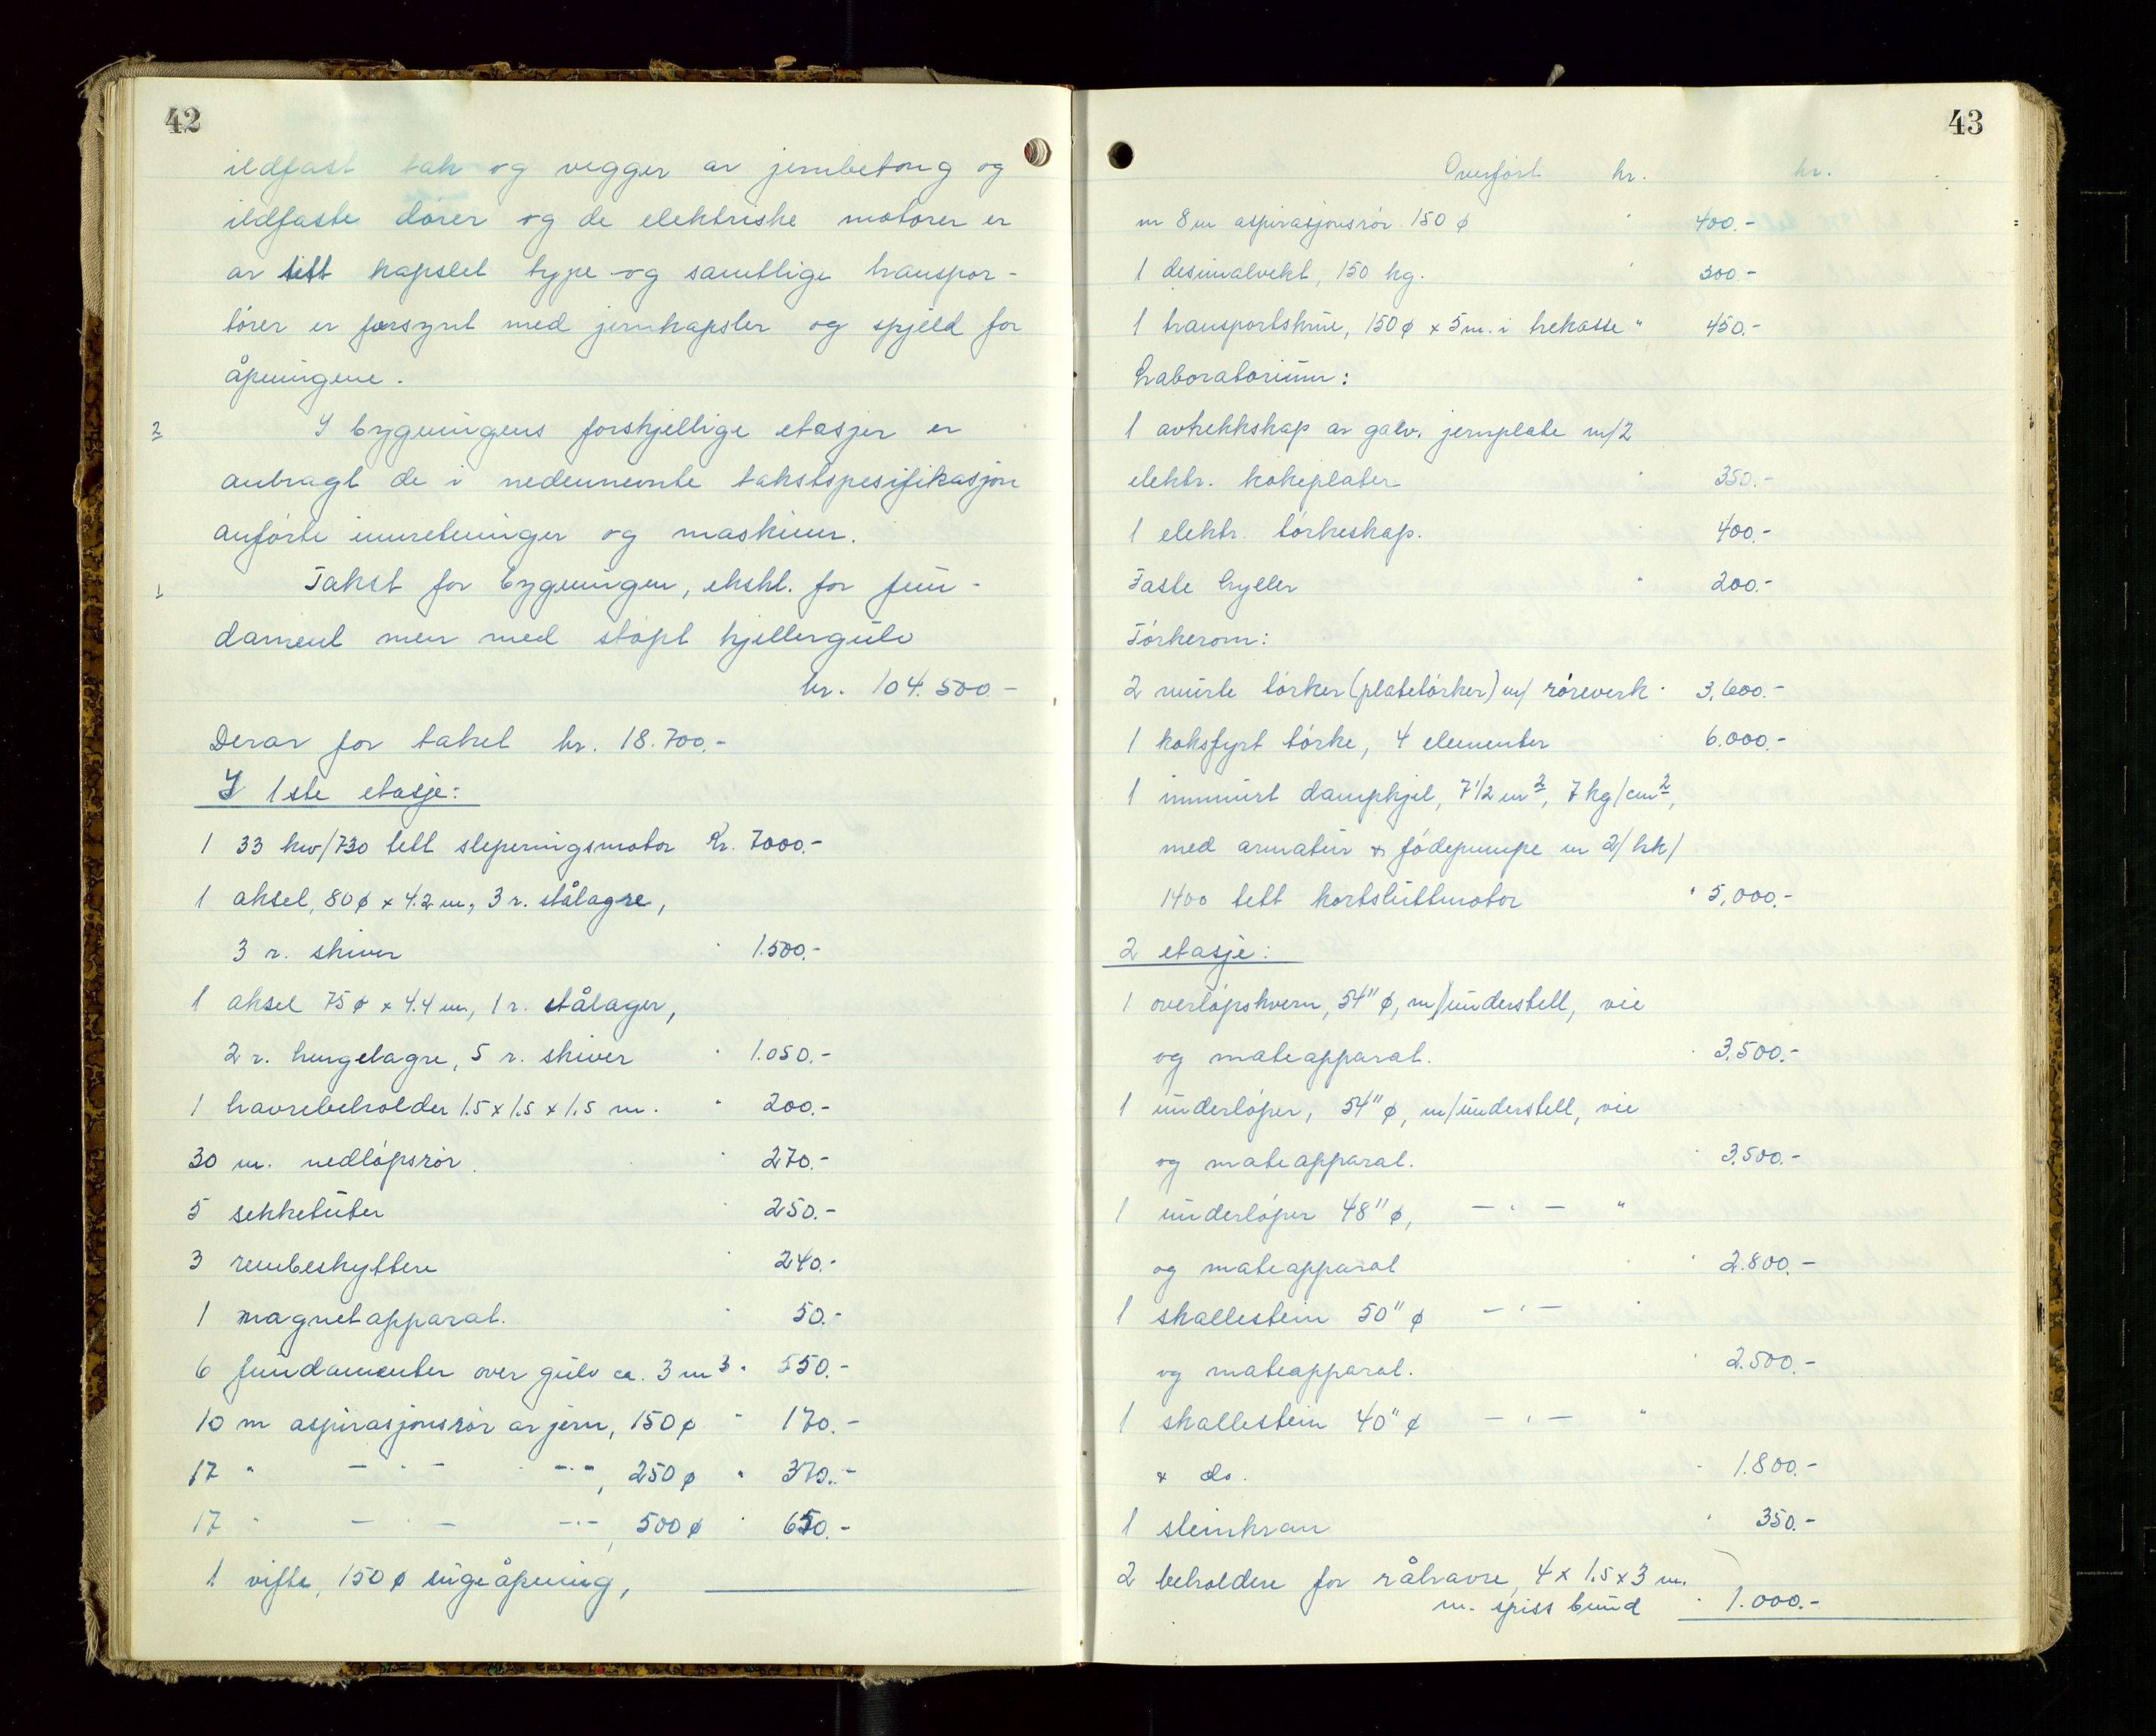 42
ildfast tak og vegger av jernbetong og
ildfaste dører og de elektriske motorer er
av tett kapslet type og samtlige transpor-
tører er forsynt med jernkapsler og spjeld for
åpningene.
2 I bygningens forskjellige etasjer er
anbragt de i nedennevnte takstspesifikasjon
anførte innretninger og maskiner.
1 Takst for bygningen, ekskl. for fun-
dament men med støpt kjellergulv
kr. 104.500.-
Derav for taket kr. 18.700.-
I 1ste etasje:
1 33 kw/730 tett sleperingsmotor Kr. 7000.-
1 aksel, 80 ø x 4.2 m, 3 r. stålagre,
3 r. skiver " 1.500.-
1 aksel 75 ø x 4.4 m, 1 r. stålager,
2 r. hengelagre, 5 r. skiver " 1.050.-
1 havrebeholder 1.5 x 1.5 x 1.5 m. " 200.-
30 m. nedløpsrør. " 270.-
5 sekketuter " 250.-
3 rembeskyttere " 240.-
1 magnetapparat. " 50.-
6 fundamenter over gulv ca. 3 m3 " 550.-
10 m aspirasjonsrør av jern, 150 ø " 170.-
17 " - " - -"-, 250 ø " 370.-
17 " - " - -"-, 500 ø " 650.-
1 vifte, 150 ø sugeåpning,
43
Overført kr. kr.
m 8 m aspirasjonsrør 150 ø " 400.-
1 desimalvekt, 150 kg. " 300.-
1 transportskrue, 150 ø x 5 m. i trekasse " 450.-
Laboratorium:
1 avtrekkskap av galv. jernplate m/2
elektr. kokeplater " 350.-
1 elektr. tørkeskap. " 400.-
Faste hyller " 200.-
Tørkerom:
2 murte tørker (platetørker) m/ røreverk " 3.600.-
1 koksfyrt tørke, 4 elementer " 6.000.-
1 innmurt dampkjel, 7 1/2 m2, 7 kg/cm2,
med armatur & fødepumpe m 2/hk/
1400 tett kortsluttmotor " 5.000.-
2 etasje:
1 overløpskvern, 54" ø, m/understell, vie
og mateapparat. " 3.500.-
1 underløper, 54" ø, m/understell, vie
og mateapparat. " 3.500.-
1 underløper 48" ø, - " - "
og mateapparat " 2.800.-
1 skallestein 50" ø - " - "
og mateapparat. " 2.500.-
1 skallestein 40" ø - " - "
& do. " 1.800.-
1 steinkran " 350.-
2 beholdere for råhavre, 4 x 1.5 x 3 m.
m. spiss bund " 1.000.-